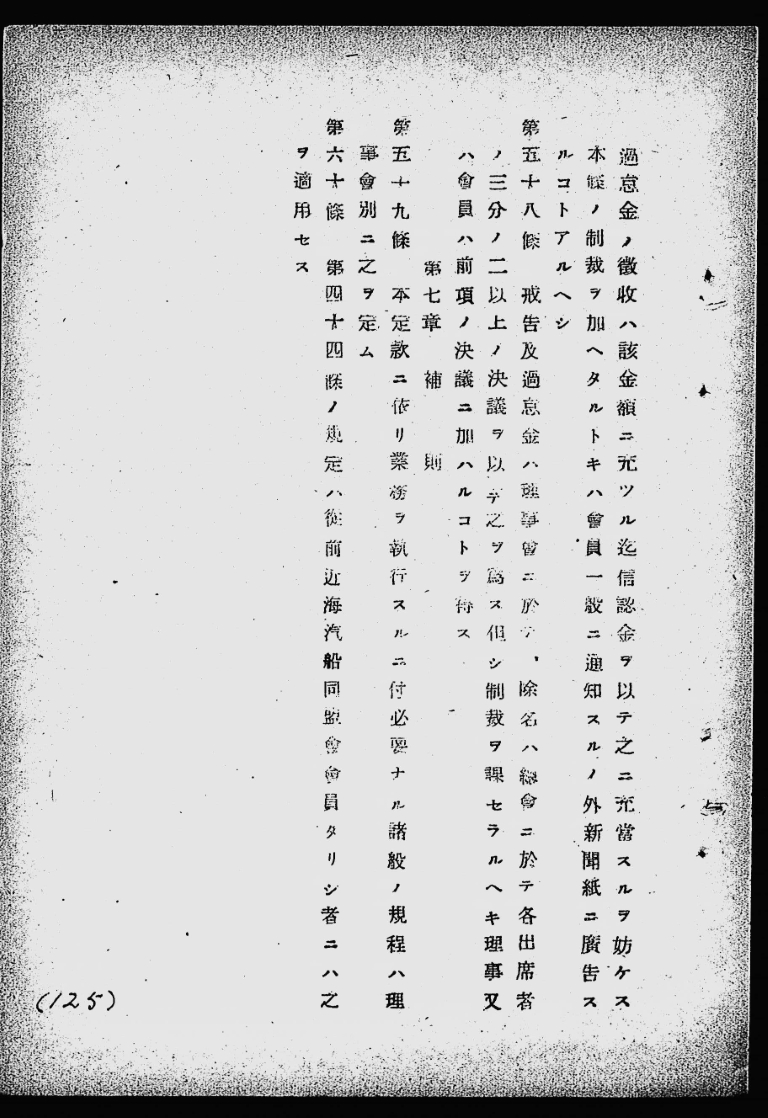 過怠金ノ徴收ハ該金額ニ充ツル迄信認金ヲ以テ之ニ充當スルヲ妨ケス
本條ノ制裁ヲ加ヘタルトキハ會員一般ニ通知スルノ外新聞紙ニ廣告ス
ルコトアルヘシ
第五十八條　戒告及過怠金ハ理事會ニ於テ、除名ハ總會ニ於テ各出席者
ノ三分ノ二以上ノ決議ヲ以テ之ヲ爲ス但シ制裁ヲ課セラルヘキ理事又
ハ會員ハ前項ノ決議ニ加ハルコトヲ得ス
第七章　補　則
第五十九條　本定款ニ依リ業務ヲ執行スルニ付必要ナル諸般ノ規程ハ理
事會別ニ之ヲ定ム
第六十條　第四十四條ノ規定ハ從前近海汽船同盟會會員タリシ者ニハ之
ヲ適用セス
(125)